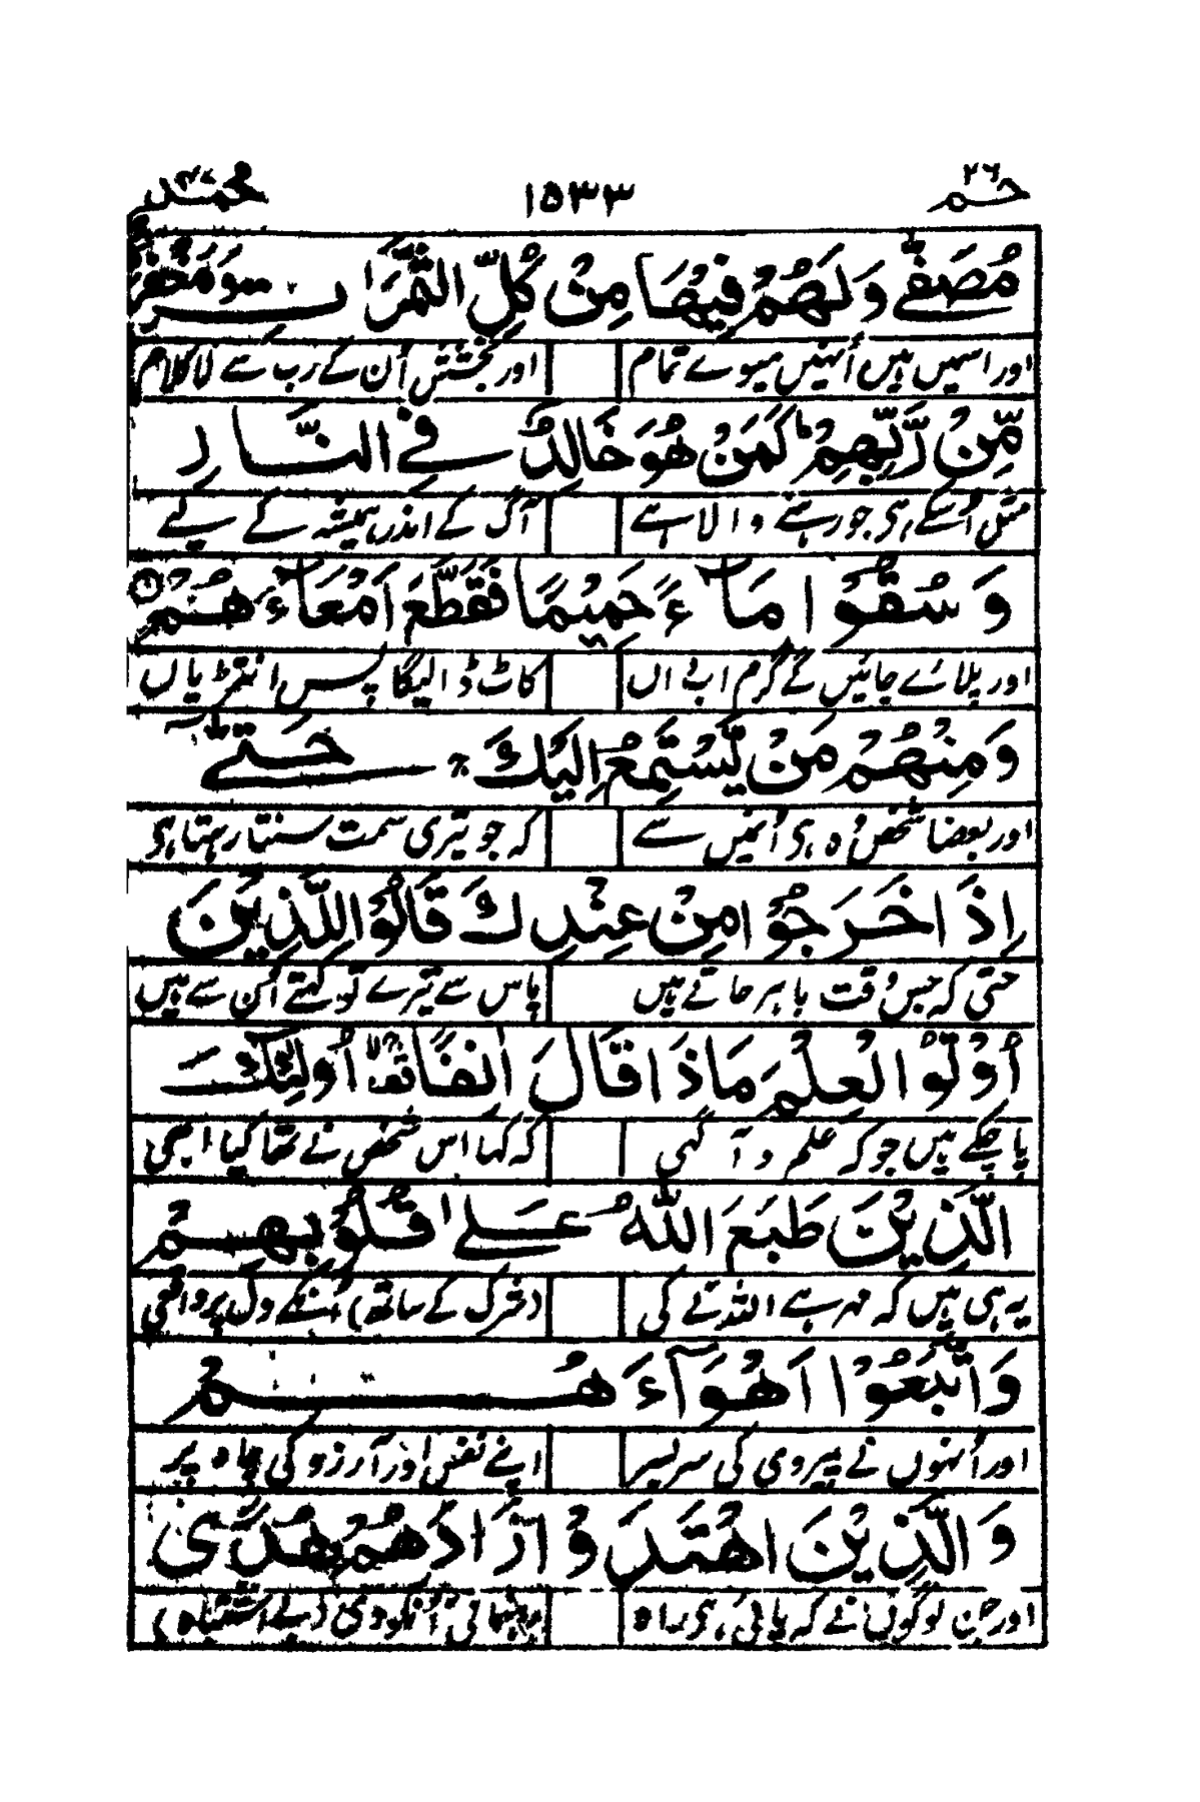 حٰم ٢٦ ١٥٣٣ محمد ٤٧
مُصَفًّى وَلَهُمْ فِيْهَا مِنْ كُلِّ الثَّمَرَاتِ وَمَغْفِرَ
اور اسمیں ہیں اُنہیں میوے تمام اور بخشش اُن کے رب سے لا کلام
مِّنْ رَّبِّهِمْ ؕ كَمَنْ هُوَ خَالِدٌ فِي النَّارِ
مثل اُسکے ہی جو رہنے والا ہے آگ کے اندر ہمیشہ کے لیے
وَسُقُوْا مَآءً حَمِيْمًا فَقَطَّعَ اَمْعَآءَهُمْ
اور پلائے جائیں گے گرم اب اں کاٹ ڈالیگا پس انتڑیاں
وَمِنْهُمْ مَنْ يَّسْتَمِعُ اِلَيْكَ ۚ حَتّٰى
اور بعضا شخص وہ ہی اُنمیں سے کہ جو تیری سمت سنتا رہتا ہی
اِذَا خَرَجُوْا مِنْ عِنْدِكَ قَالُوْا لِلَّذِيْنَ
حتی کہ جس وقت باہر جاتے ہیں پاس سے تیرے تو کہتے اُن سے ہیں
اُوْتُوا الْعِلْمَ مَاذَا قَالَ اٰنِفًا اُولٰٓئِكَ
پا چکے ہیں جو کہ علم و آگہی کہ کہا اس شخص نے تھا کیا ابھی
الَّذِيْنَ طَبَعَ اللّٰهُ عَلٰى قُلُوْبِهِمْ
یہ ہی ہیں کہ مہر ہے اللہ نے کی (شرک کے ساتھ) اُنکے دل پر واقعی
وَاتَّبَعُوْۤا اَهْوَآءَهُمْ
اور اُنہوں نے پیروی کی سربسر اپنے نفس اور آرزو کی چاہ پر
وَالَّذِيْنَ اهْتَدَوْا زَادَهُمْ هُدًى
اور جن لوگوں نے کہ پائی ہی راہ رہنمائی اُنکو دی (بے اشتباہ)